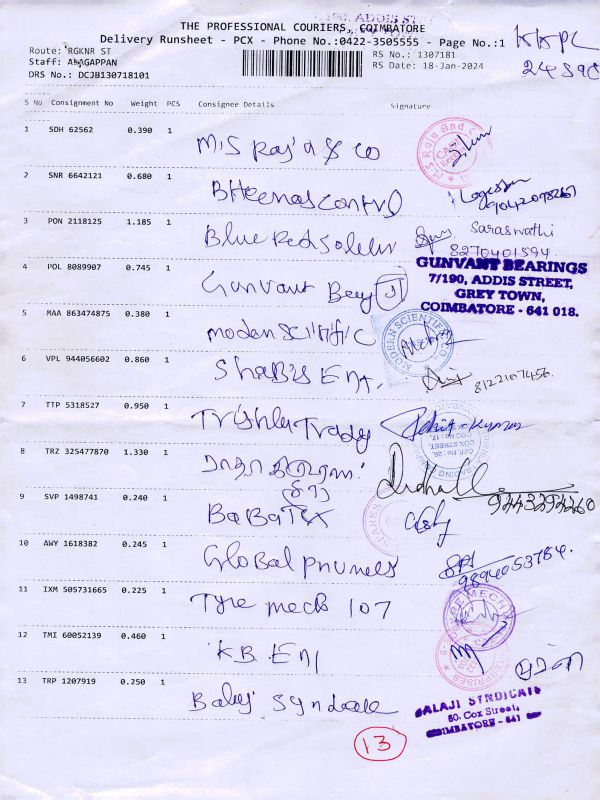 THE PROFESSIONAL COURIERS, COIMBATORE
Delivery Runsheet - PCX - Phone No.:0422-3505555 - Page No.:1
KKPL
Route: RGKNR ST
RS No.: 1307181
Staff: ALAGAPPAN
RS Date: 18-Jan-2024
DRS No.: DCJB130718101
S No Consignment No Weight PCS Consignee Details Signature
1 SDH 62562 0.390 1 M/S Raj'a & co
2 SNR 6642121 0.680 1 Bheemas control
3 PON 2118125 1.185 1 Saraswathi
8270401594
4 POL 8089907 0.745 1 Gunvant
GUNVANT BEARINGS
7/190, ADDIS STREET,
GREY TOWN,
COIMBATORE - 641 018.
5 MAA 863474875 0.380 1 modern scintific
MODERN SCIENTIFIC
6 VPL 944056602 0.860 1 Shabis Ent. 8122107456.
7 TTP 5318527 0.950 1 Trishla
8 TRZ 325477870 1.330 1
9443294260
9 SVP 1498741 0.240 1 BaBaTex
10 AWY 1618382 0.245 1 Global 9894053784.
11 IXM 505731665 0.225 1 Tyre mech 107
12 TMI 60052139 0.460 1 KB. Ent
13 TRP 1207919 0.250 1 Balaji Syndicate
BALAJI SYNDICATE
60. Cox Street,
COIMBATORE - 641
13